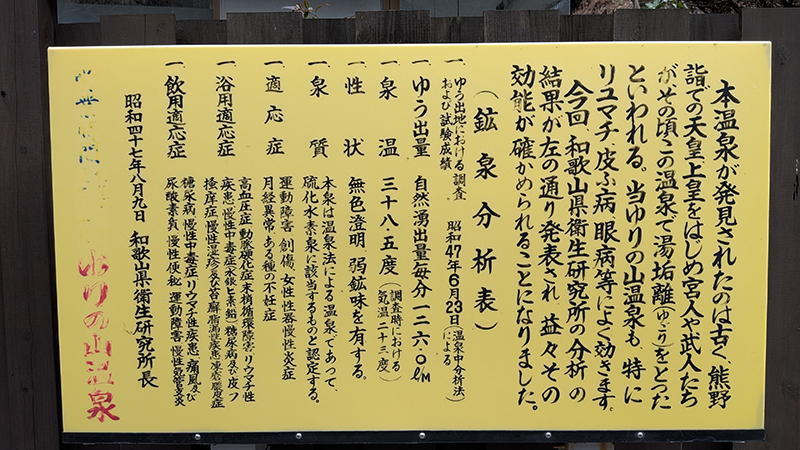 本温泉が発見されたのは古く、熊野
詣での天皇、上皇をはじめ宮人や武人たち
がその頃この温泉で湯垢離(ゆごり)をとった
といわれる。当ゆりの山温泉も、特に
リュマチ、皮ふ病、眼病等によく効きます。
今回、和歌山県衛生研究所の分析の
結果が左の通り発表され、益々その
効能が確かめられることになりました。
(鉱泉分析表)
一、ゆう出地における調査および試験成績 昭和47年6月23日(温泉中分析法)による
一、ゆう出量 自然湧出量毎分一二六・〇ℓ/M
一、泉温 三十八・五度(調査時における気温二十三度)
一、性状 無色澄明 弱鉱味を有する。
一、泉質 本泉は温泉法による温泉であって、
硫化水素泉に該当するものと認定する。
一、適応症 運動障害 創傷、女性性器慢性炎症
月経異常、ある種の不妊症
一、浴用適応症 高血圧症 動脈硬化症 末梢循環障害 リウマチ性
疾患 慢性中毒症(水銀と素鉛)糖尿病及び皮フ
掻痒症 慢性湿疹及び苔癬
一、飲用適応症 糖尿病 慢性中毒症 リウマチ性疾患 痛風及び
尿酸素質 慢性便秘 運動障害 慢性気管支炎
昭和四十七年八月九日 和歌山県衛生研究所長
ゆりの山温泉